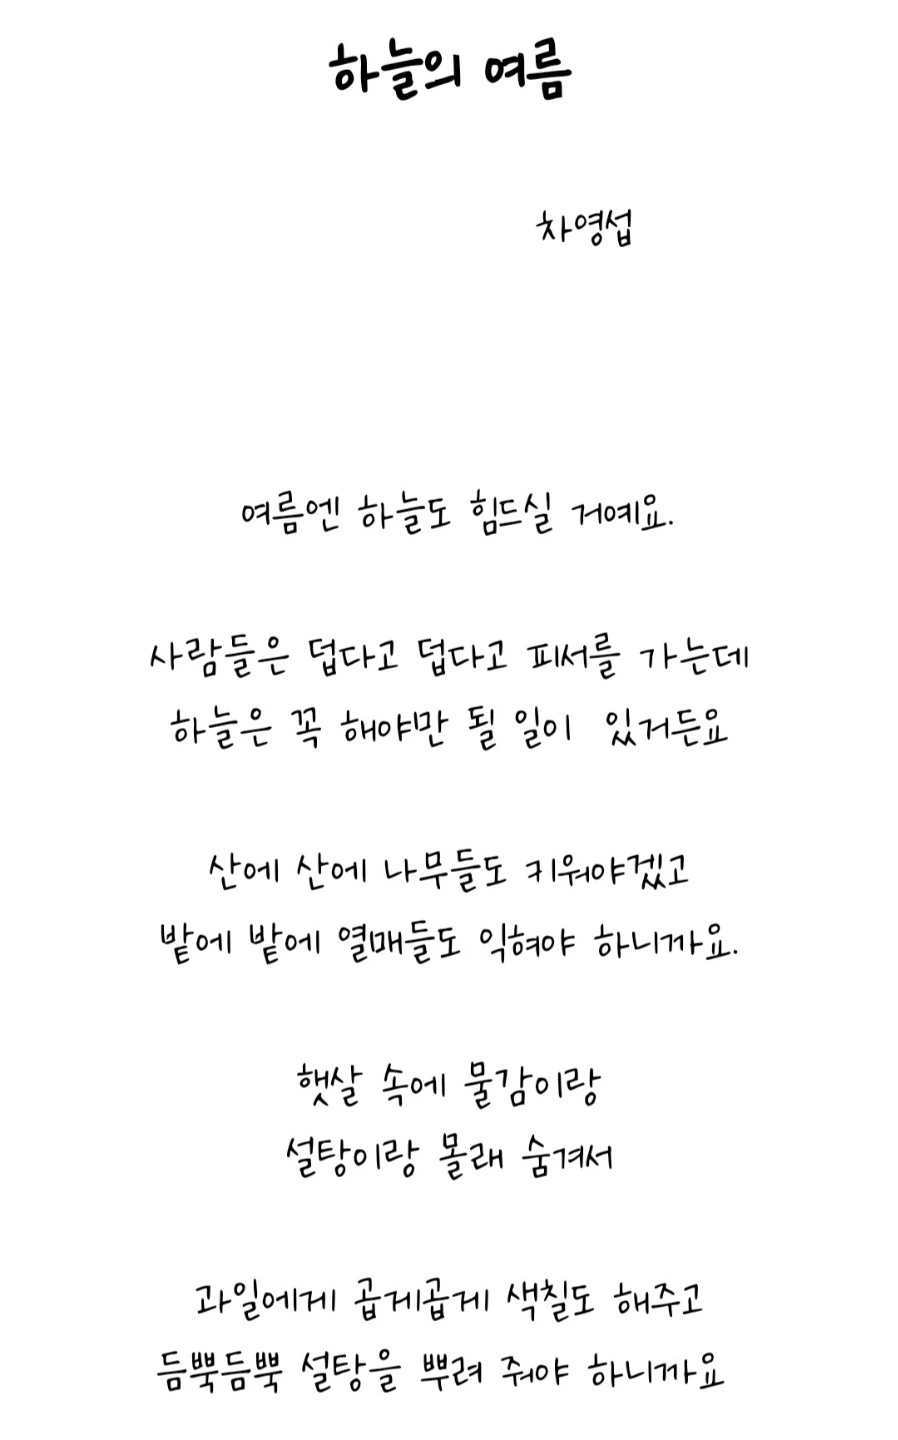 하늘의 여름
차영섭
여름엔 하늘도 힘드실 거예요.
사람들은 덥다고 덥다고 피서를 가는데
하늘은 꼭 해야만 될 일이 있거든요
산에 산에 나무들도 키워야겠고
밭에 밭에 열매들도 익혀야 하니까요.
햇살 속에 물감이랑
설탕이랑 몰래 숨겨서
과일에게 곱게곱게 색칠도 해주고
듬뿍듬뿍 설탕을 뿌려 줘야 하니까요